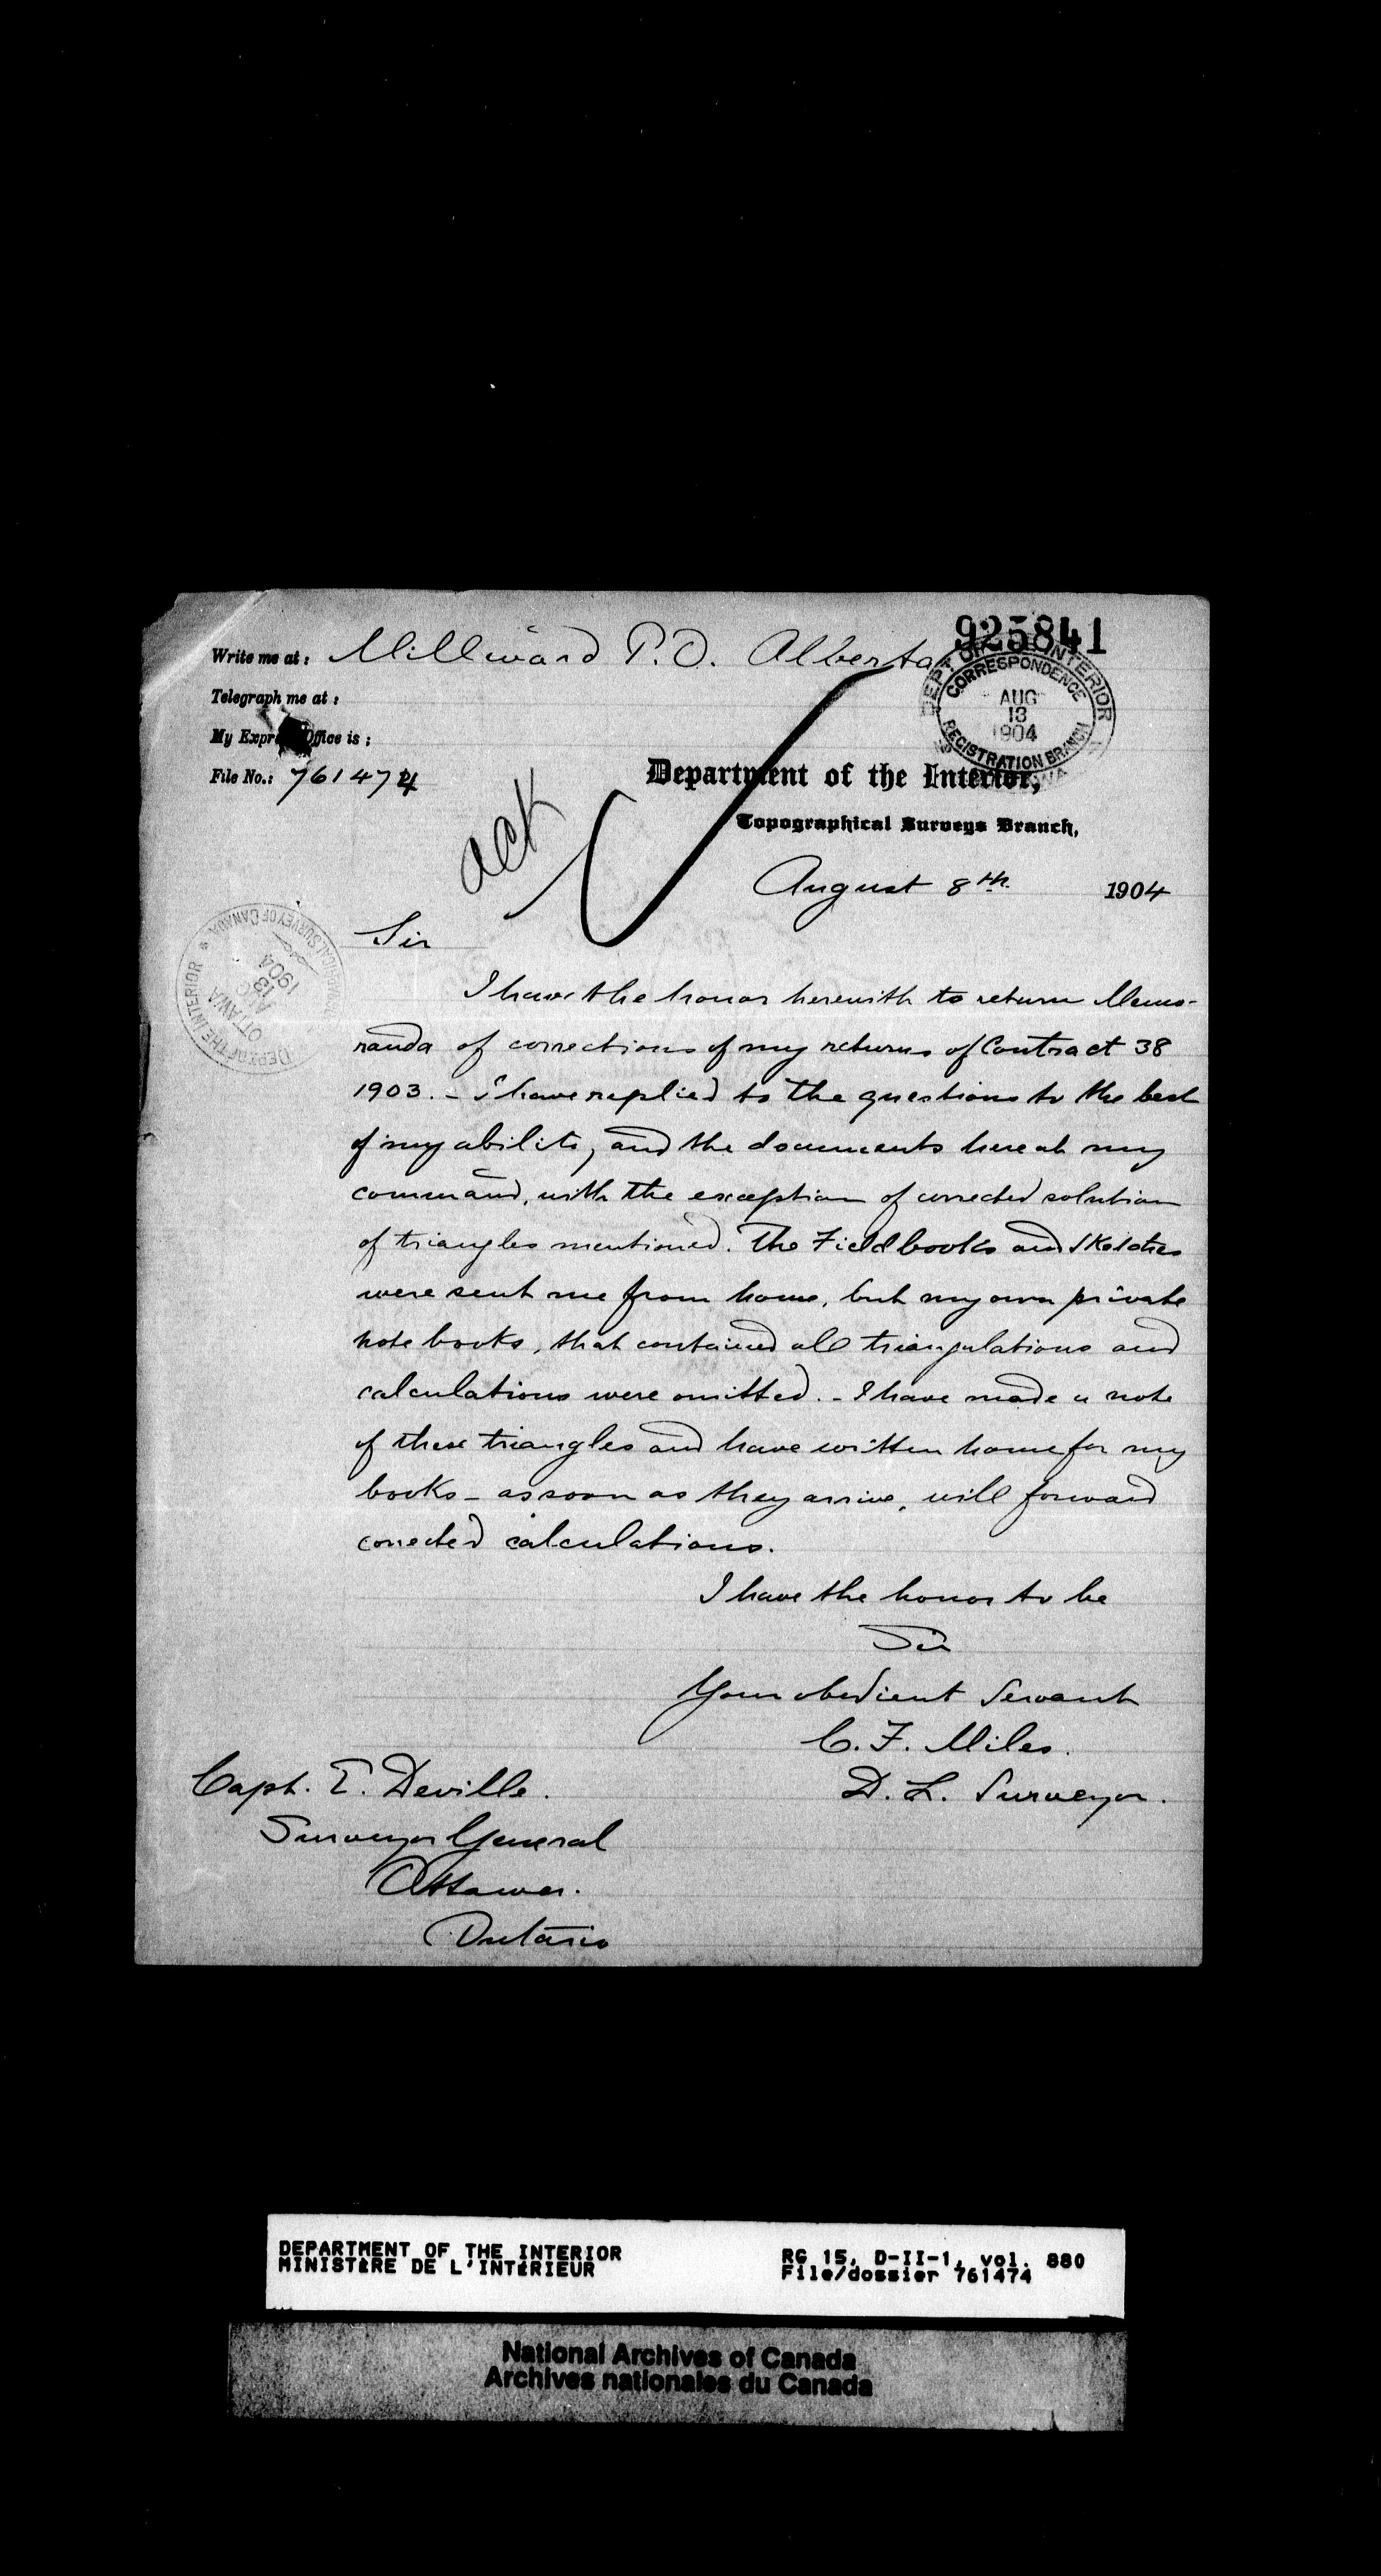 925841
Write me at: Millward P.O. Alberta
Telegraph me at:
My Express Office is:
File No.: 761474
DEPT OF THE INTERIOR
CORRESPONDENCE
AUG
13
1904
REGISTRATION BRANCH
Department of the Interior,
Topographical Surveys Branch,
ack
August 8th 1904
TOPOGRAPHICAL SURVEY OF CANADA
DEPT OF THE INTERIOR
AUG
13
1904
OTTAWA
Sir
I have the honor herewith to return Memo-
randa of corrections of my returns of Contract 38
1903. - I have replied to the questions to the best
of my ability, and the documents here at my
command, with the exception of corrected solution
of triangles mentioned. The Field books and Sketches
were sent me from home, but my own private
note books, that contained all triangulations and
calculations were omitted. - I have made a note
of these triangles and have written home for my
books - as soon as they arrive, will forward
corrected calculations.
I have the honor to be
Sir
Your obedient Servant
C. F. Miles.
D. L. Surveyor.
Capt. E. Deville.
Surveyor General
Ottawa.
Ontario
DEPARTMENT OF THE INTERIOR
MINISTÈRE DE L'INTÉRIEUR
RG 15, D-II-1, vol. 880
File/dossier 761474
National Archives of Canada
Archives nationales du Canada